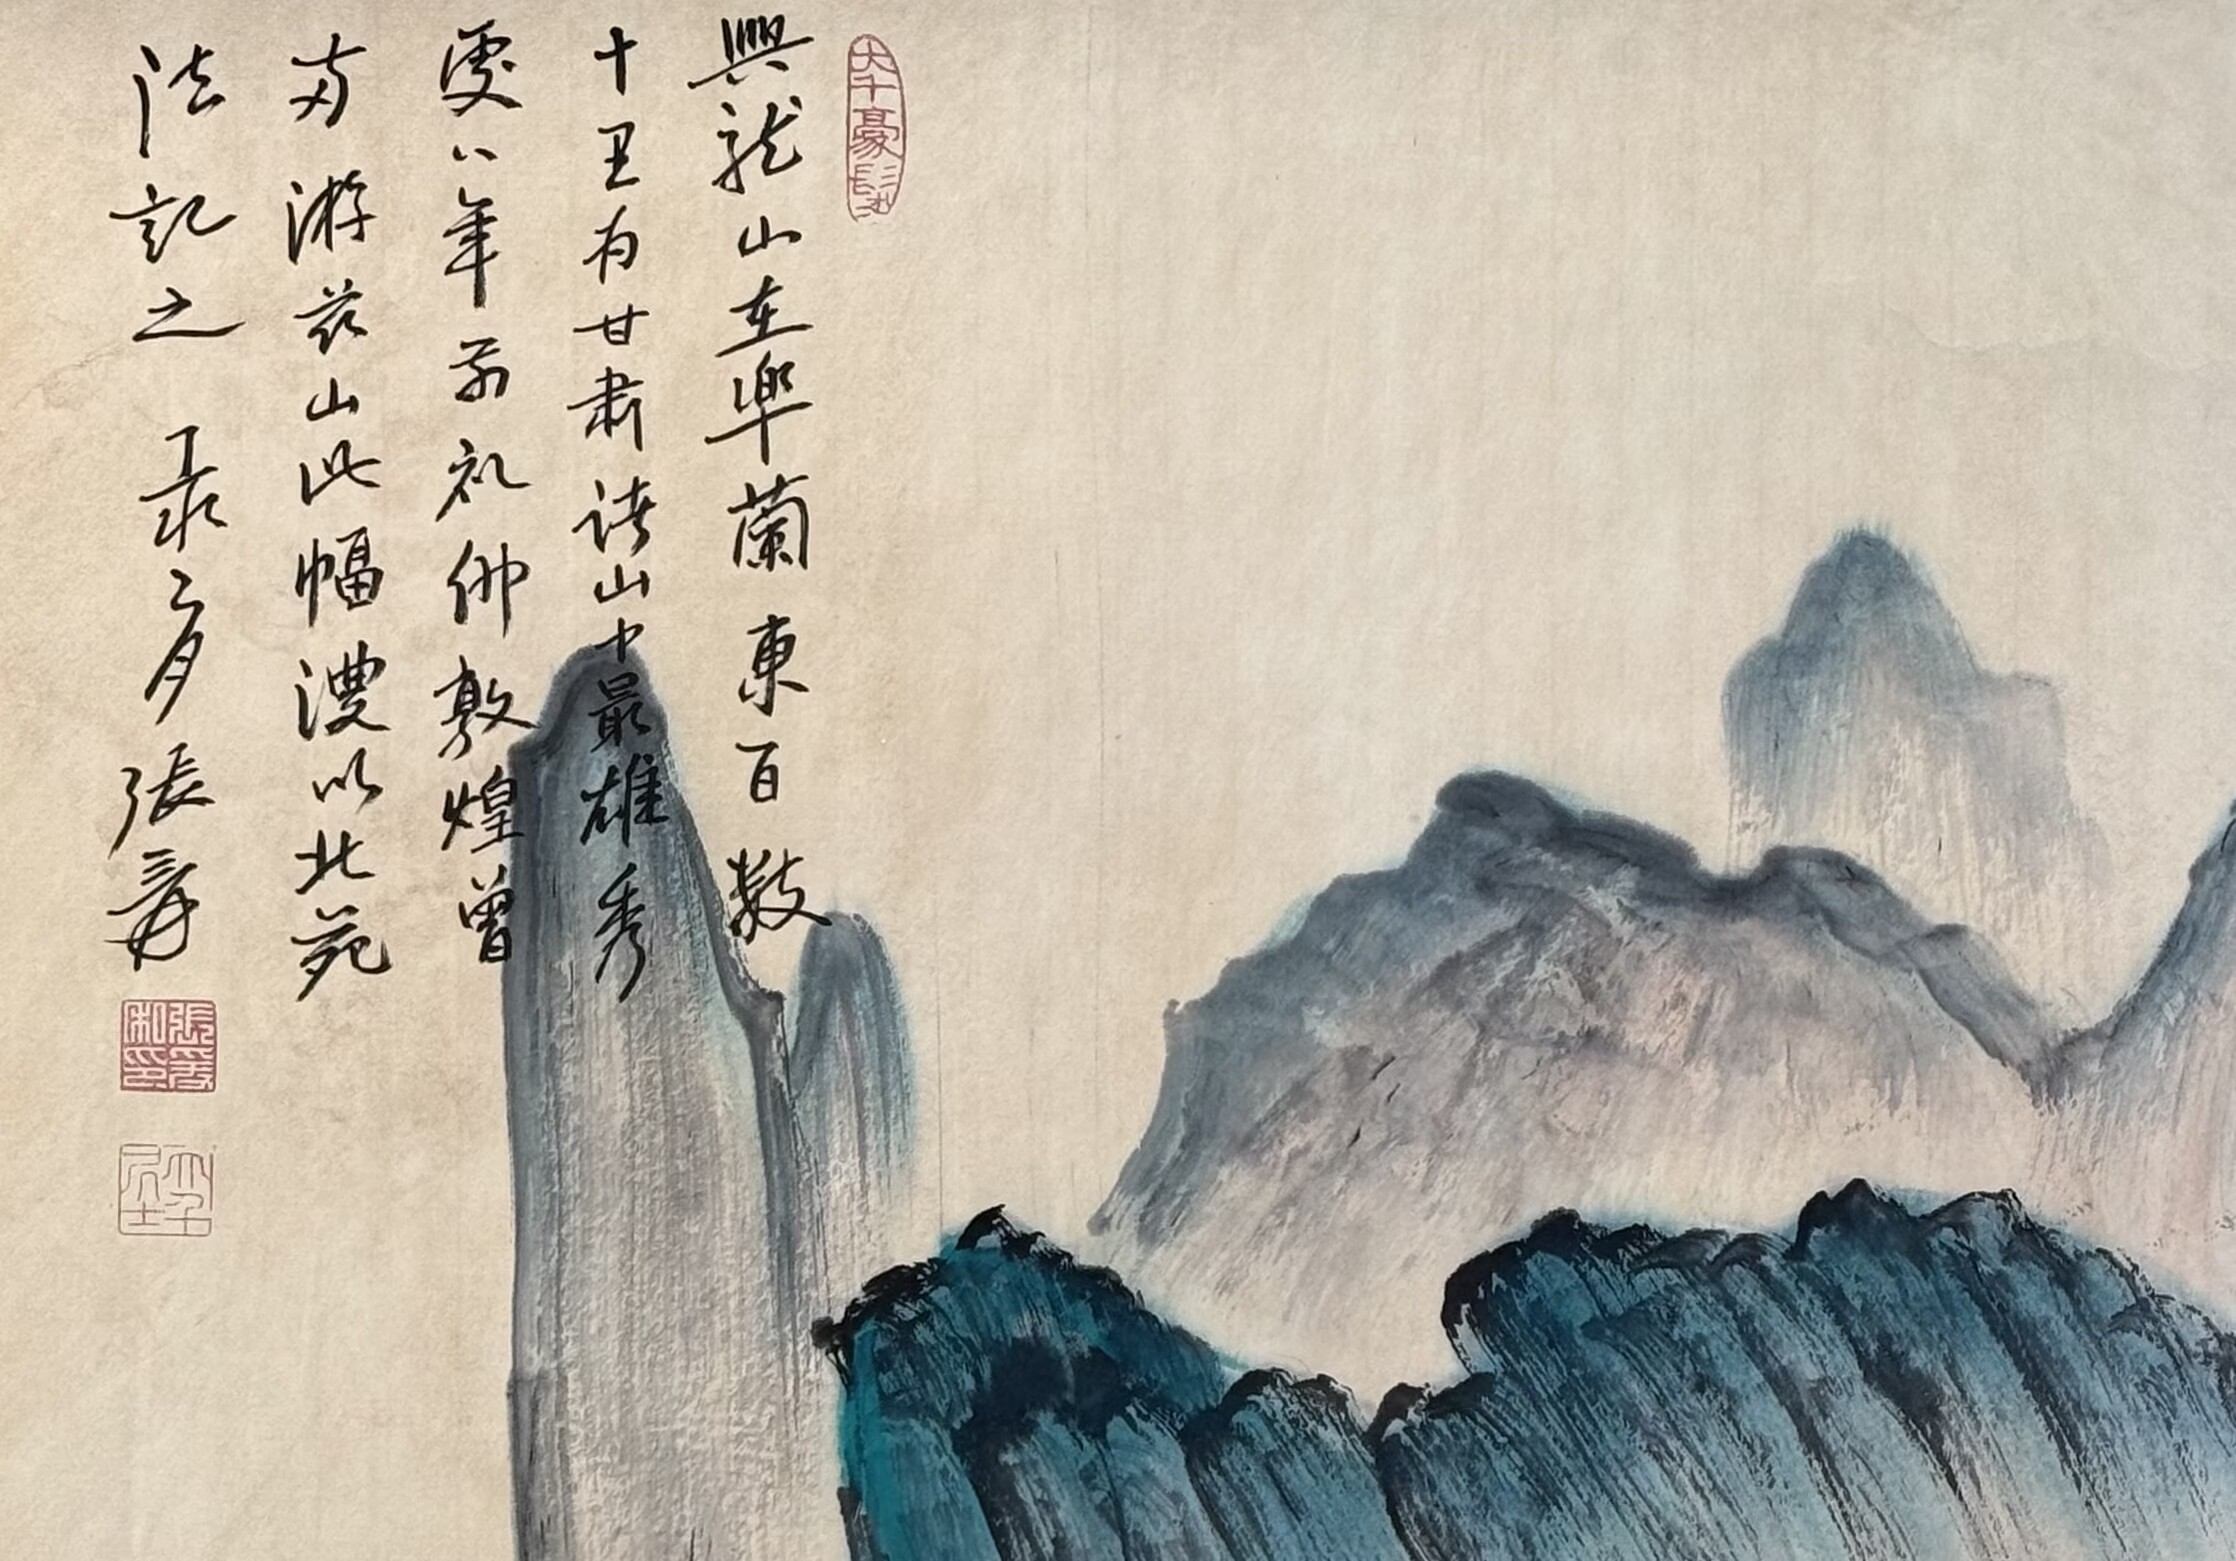 大千豪髮
興龍山在皋蘭東百數
十里為甘肅諸山中最雄秀
處八年前礼佛敦煌曾
兩游茲山此幅漫以北苑
法記之 二月張爰
張爰私印
大千居士